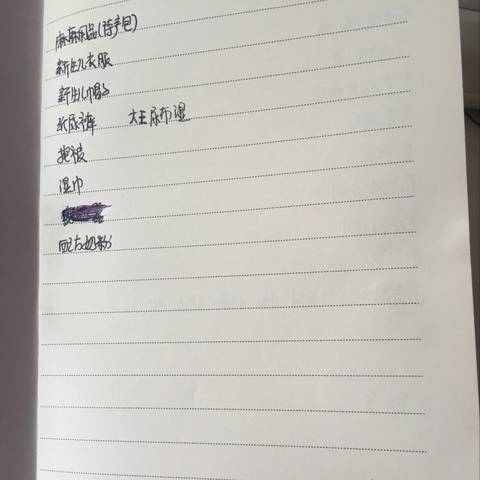 麻麻用品(待产包)
新生儿衣服
新生儿帽子
纸尿裤 大王 尿布湿
抱被
湿巾
配方奶粉